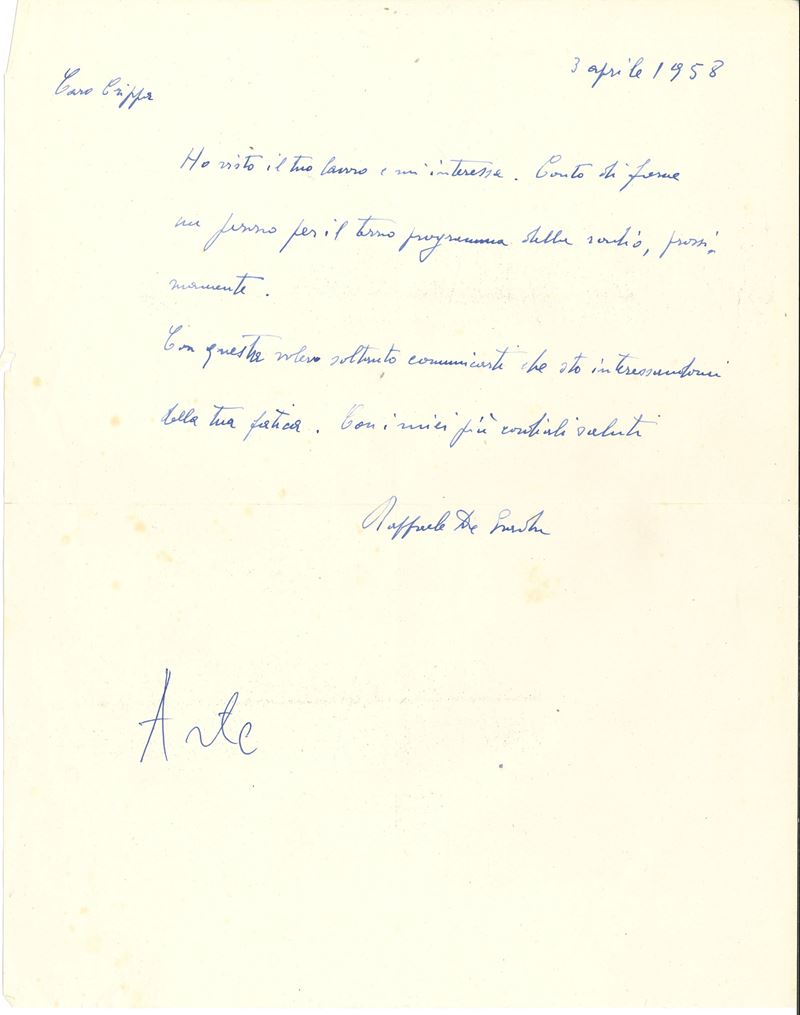 3 aprile 1958
Caro Crippa
Ho visto il tuo lavoro e mi interessa. Conto di farne
un pezzo per il terzo programma della radio, prossi-
mamente.
Con questa volevo soltanto comunicarti che sto interessandomi
della tua fatica. Con i miei più cordiali saluti
Raffaele De Grada
Arte